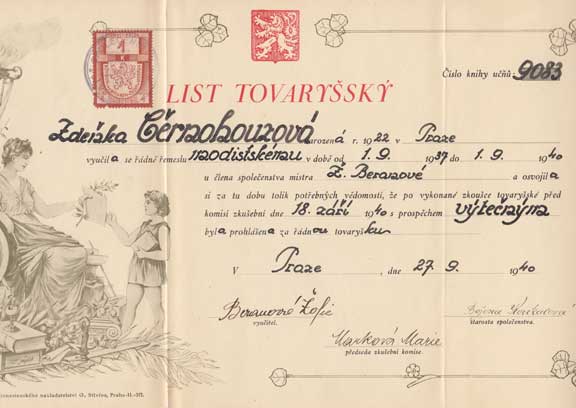 1
K
Číslo knihy učňů: 9083
LIST TOVARYŠSKÝ
Zdeňka Černohouzová narozená r. 1922 v Praze
vyučila se řádně řemeslu modistskému v době od 1. 9. 1937 do 1. 9. 1940
u člena společenstva mistra Ž. Beranové a osvojila
si za tu dobu tolik potřebných vědomostí, že po vykonané zkoušce tovaryšské před
komisí zkušební dne 18. září 1940 s prospěchem výtečným
byla prohlášena za řádnou tovaryšku.
V Praze, dne 27. 9. 1940
Beranová Žofie
vyučitel.
Božena
starosta společenstva.
Marková Marie
předseda zkušební komise.
nakladatelství G. Stivína, Praha-II.-